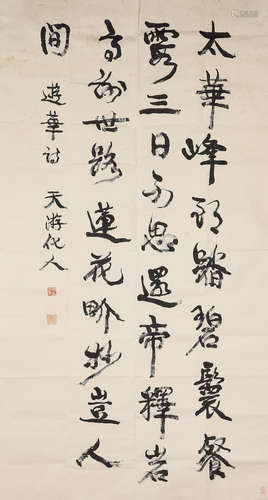 太華峰頭踏碧鬟餐
霞三日不思還帝釋岩
高謝世路蓮花畍妙豈人
間 遊華詩 天游化人